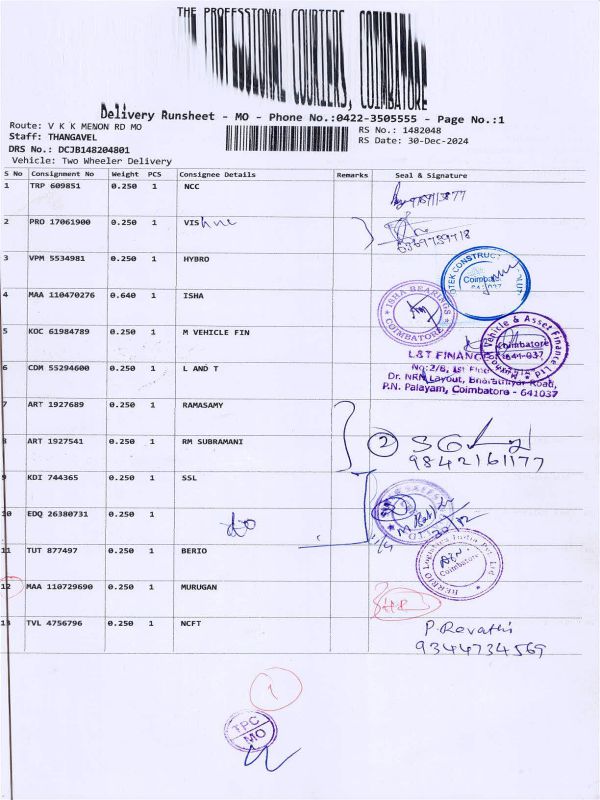 THE PROFESSIONAL COURIERS, COIMBATORE
Delivery Runsheet - MO - Phone No.:0422-3505555 - Page No.:1
Route: V K K MENON RD MO
Staff: THANGAVEL
DRS No.: DCJB148204801
Vehicle: Two Wheeler Delivery
RS No.: 1482048
RS Date: 30-Dec-2024
S No Consignment No Weight PCS Consignee Details Remarks Seal & Signature
1 TRP 609851 0.250 1 NCC
2 PRO 17061900 0.250 1 VIS
3 VPM 5534981 0.250 1 HYBRO
4 MAA 110470276 0.640 1 ISHA
ISHA BEARINGS
COIMBATORE
5 KOC 61984789 0.250 1 M VEHICLE FIN
Vehicle & Asset Finance Ltd
Coimbatore
641-037
6 CDM 55294600 0.250 1 L AND T
L&T FINANCE
No:2/8, 1st
Dr. NRN Layout, Bharathiyar Road,
P.N. Palayam, Coimbatore - 641037
7 ART 1927689 0.250 1 RAMASAMY
8 ART 1927541 0.250 1 RM SUBRAMANI
2
9842161177
9 KDI 744365 0.250 1 SSL
10 EDQ 26380731 0.250 1
11 TUT 877497 0.250 1 BERIO
Logistics India Pvt. Ltd
Coimbatore
12 MAA 110729690 0.250 1 MURUGAN
13 TVL 4756796 0.250 1 NCFT
P. Revathi
9344734569
1
TPC
MO